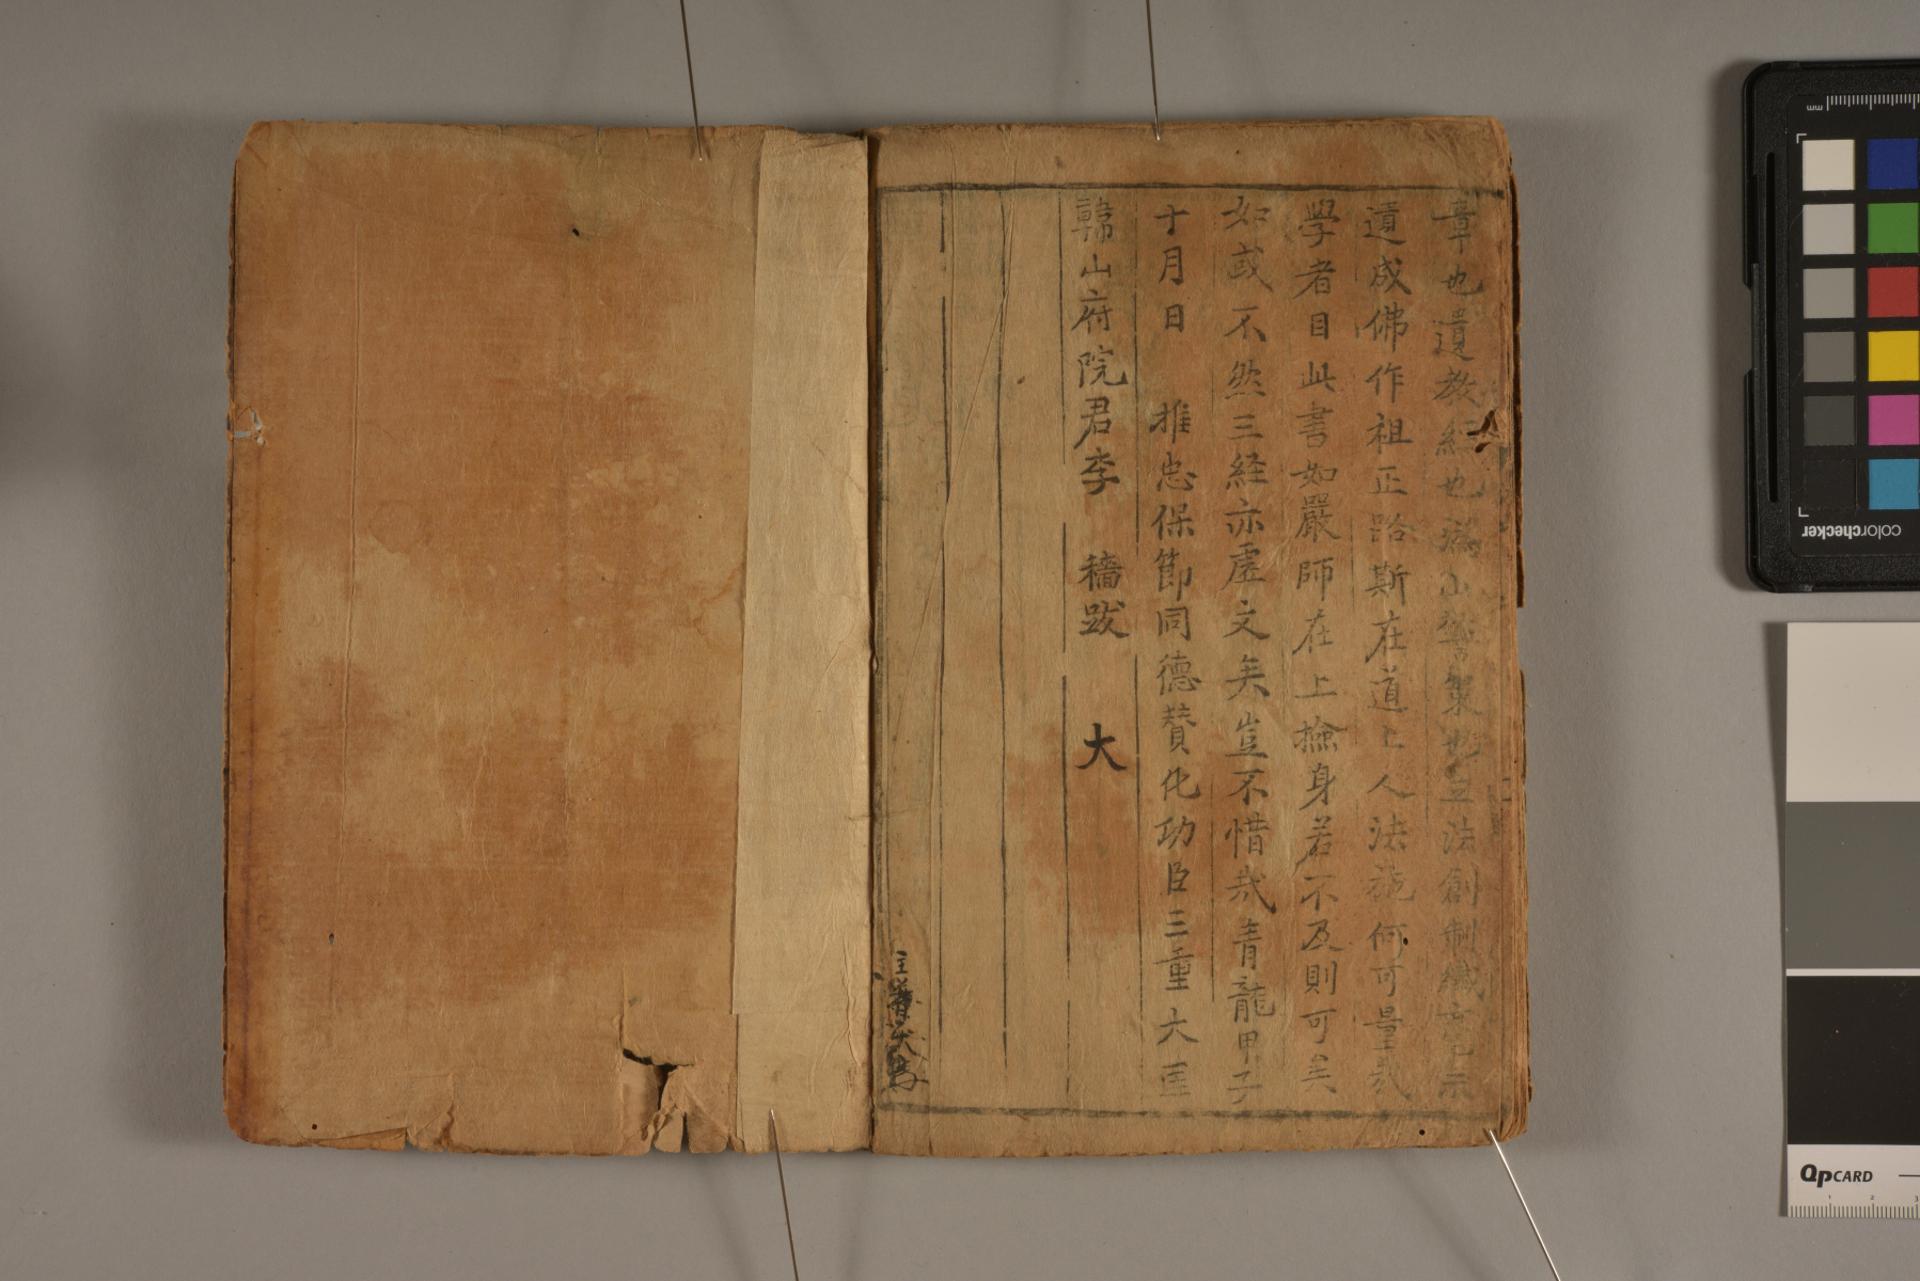 章也遺教經也潙山警策也立法創制纖悉示
道成佛作祖正路斯在道上人法施何可量哉
學者目此書如嚴師在上撿身若不及則可矣
如或不然三経亦虛文矣豈不惜哉青龍甲子
十月日 推忠保節同德賛化功臣三重大匡
韓山府院君李 穡跋 大
主
colorchecker
mm
QPCARD
1 2 3